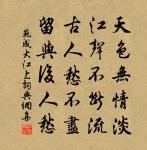 天色無情淡
江聲不斷流
古人愁不盡
留與後人愁
范成大江上詞典網集